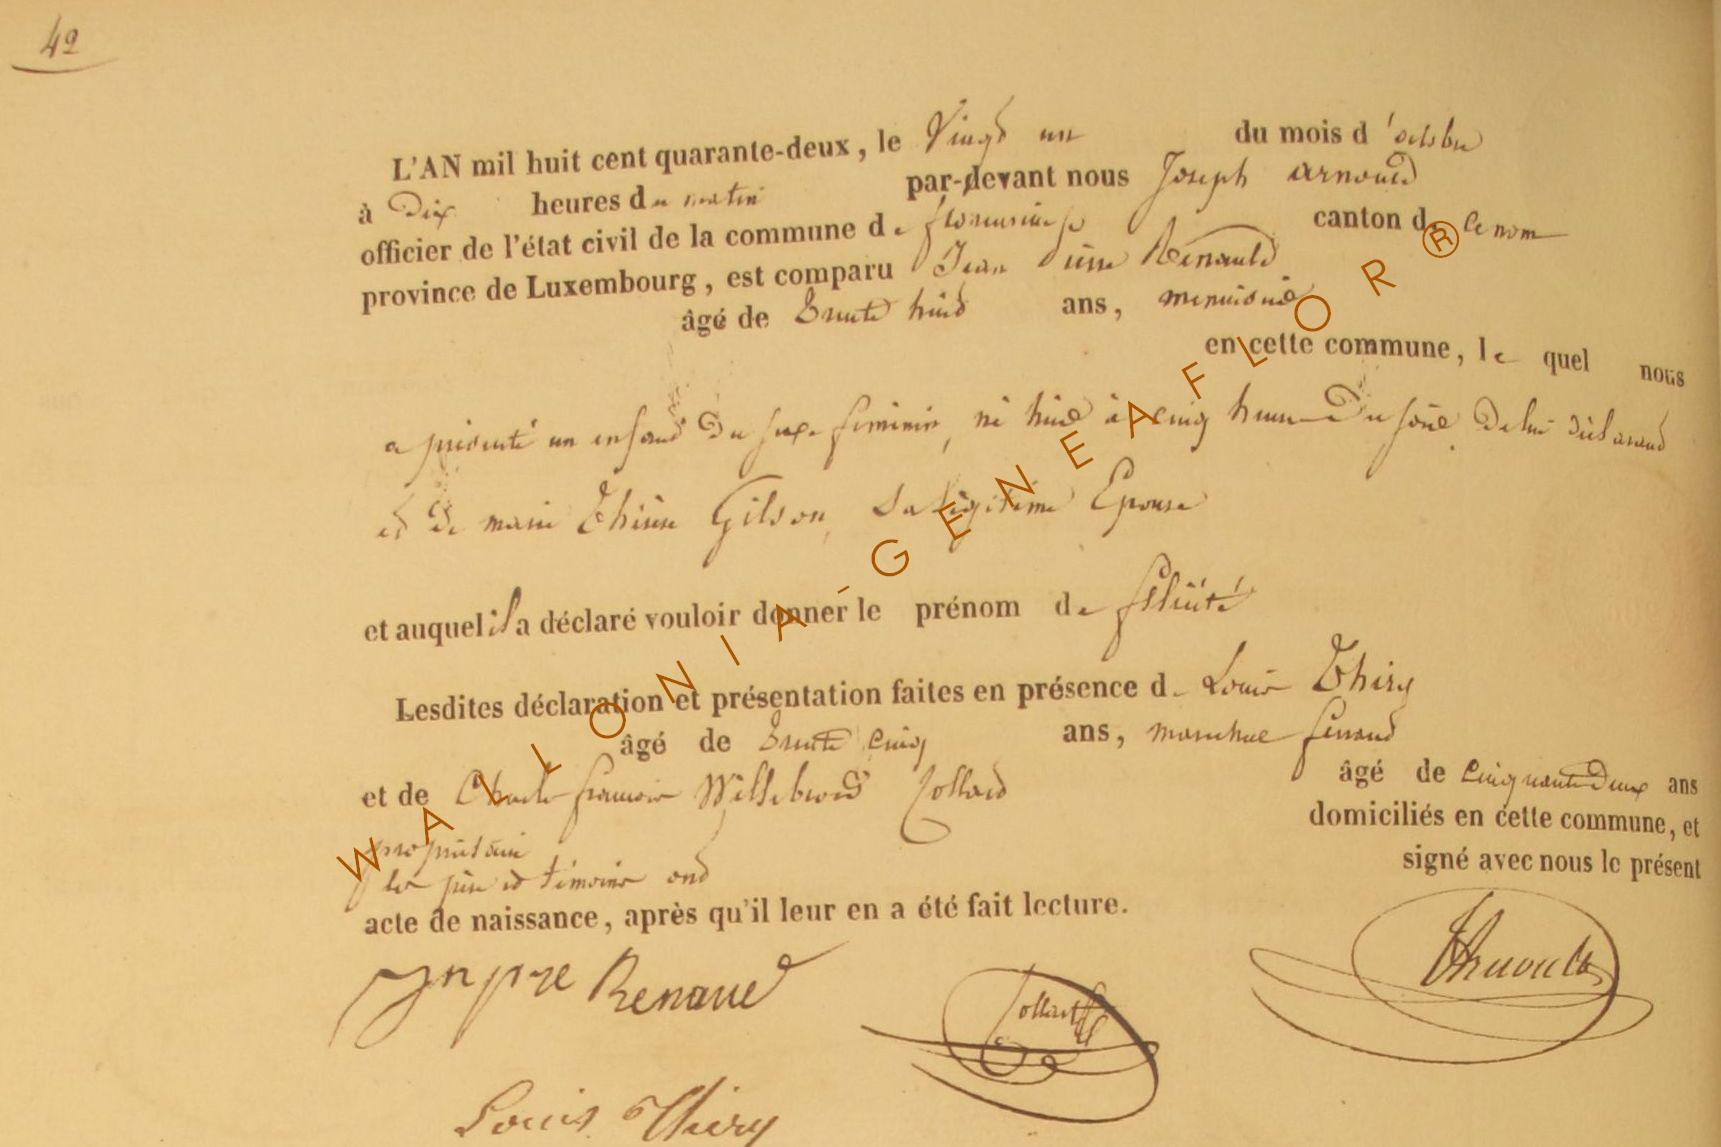 42
L'AN mil huit cent quarante-deux, le Vingt un du mois d'octobre
à Dix heures du matin par-devant nous Joseph Arnould
officier de l'état civil de la commune de canton de ce nom
province de Luxembourg, est comparu Jean Pierre Renauld
âgé de trente huit ans, menuisier
en cette commune, le quel nous
a présenté un enfant du sexe feminin, né hier à cinq heures du soir de lui déclarant
et de marie Thérèse Gilson, Sa légitime Epouse
et auquel il a déclaré vouloir donner le prénom de félicité
Lesdites déclaration et présentation faites en présence de Louis Thiry
âgé de trente cinq ans, marechal ferrant
et de Charles françois Willebrord Collard âgé de cinquante Deux ans
propriétaire domiciliés en cette commune, et
les père et témoins ont signé avec nous le présent
acte de naissance, après qu'il leur en a été fait lecture.
Jn pre Renaud
Collart
Arnould
Louis Thiry
WALLONIA-GENEAFLOR®